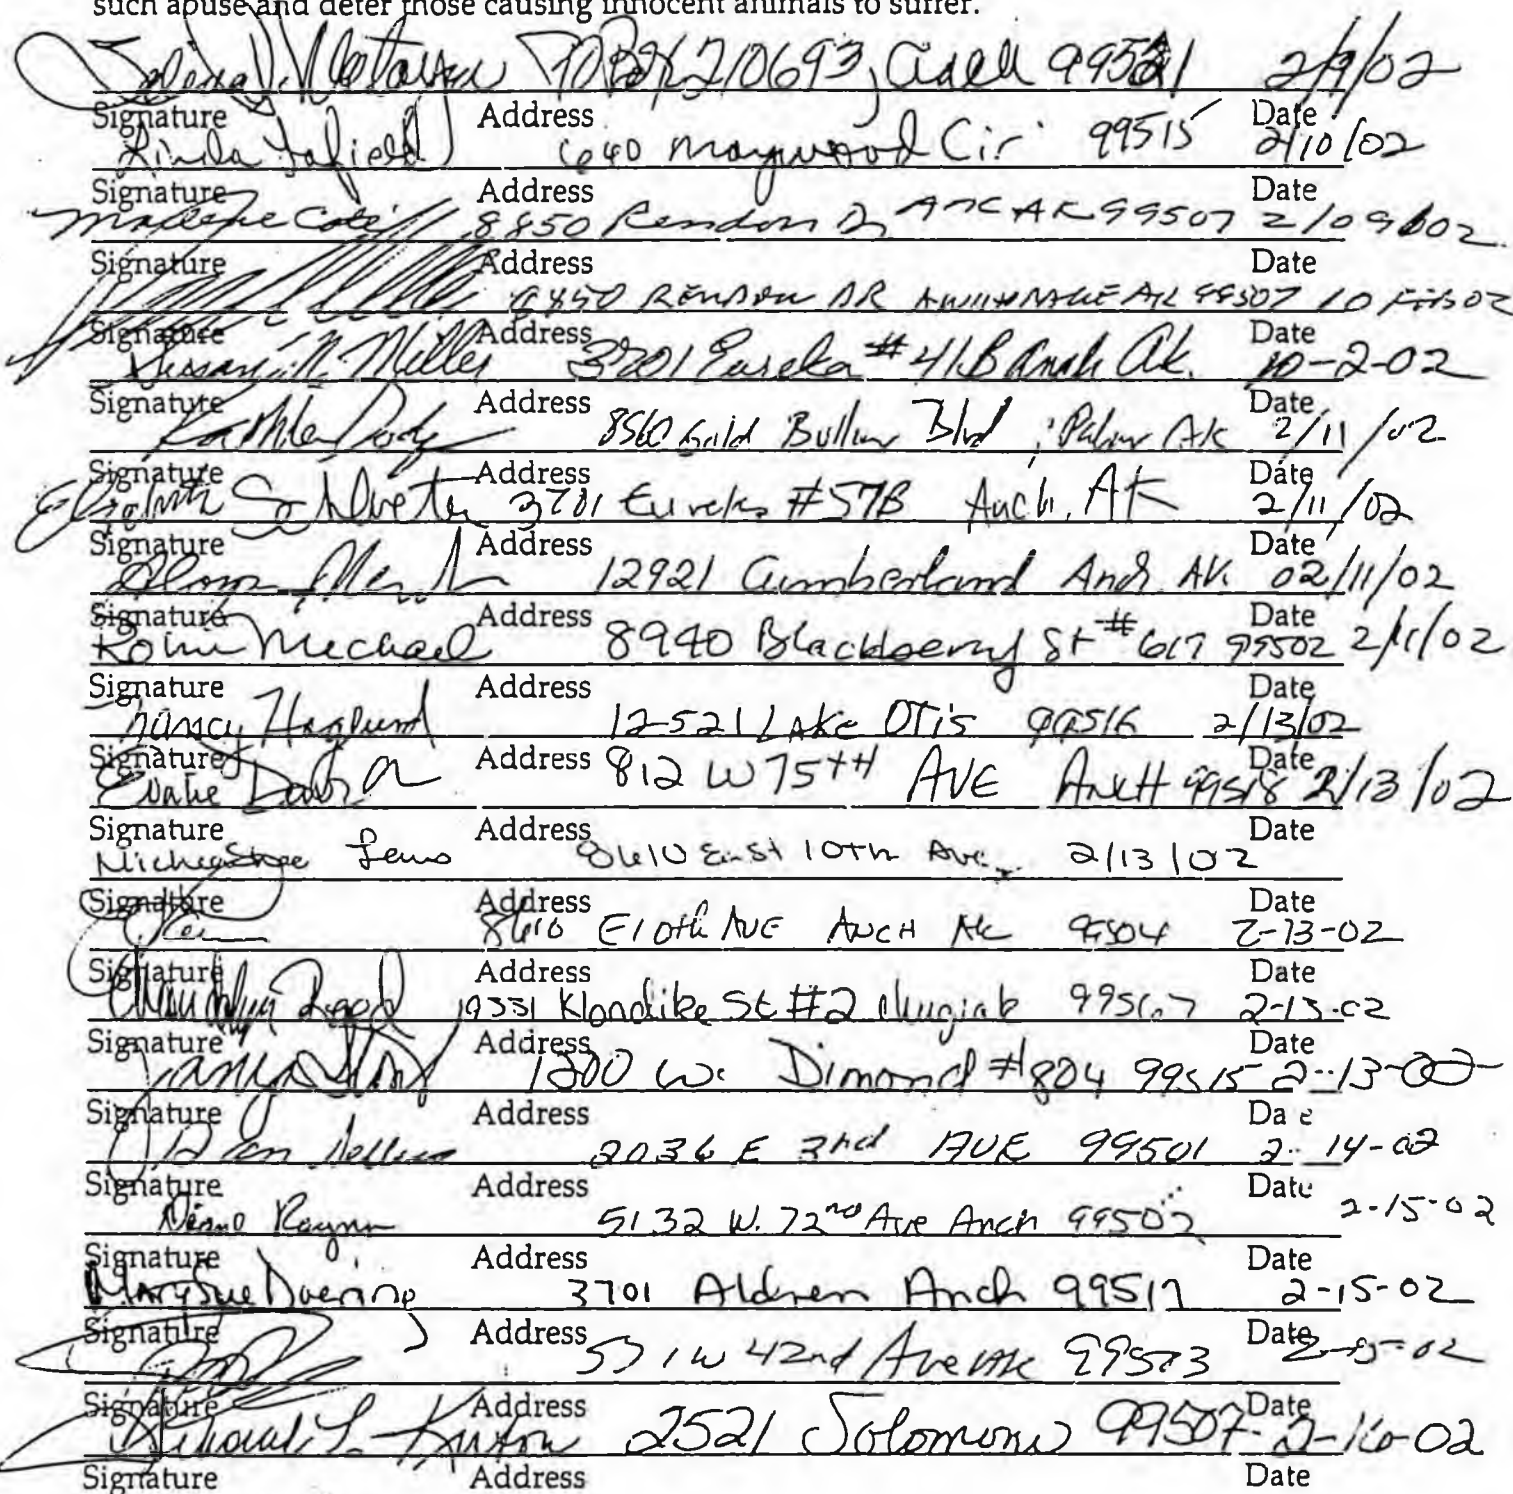 such abuse and deter those causing innocent animals to suffer.
PO Box 210693, 99521 2/9/02
Signature Address Date
Linda 640 Maywood Cir 99515 2/10/02
Signature Address Date
8850 Rendon Dr ANC AK 99507 2/09/02
Signature Address Date
8850 RENDON DR ANCHORAGE AK 99507 10 FEB 02
Signature Address Date
Miller 3701 Eureka #41B Anch Ak. 10-2-02
Signature Address Date
8560 Gold Bullion Blvd ; Palmer AK 2/11/02
Signature Address Date
Elizabeth 3701 Eureka #57B Anch, AK 2/11/02
Signature Address Date
12921 Cumberland Anch AK. 02/11/02
Signature Address Date
Robin Michael 8940 Blackberry St #617 99502 2/11/02
Signature Address Date
Nancy Haglund 12521 LAKE OTis 99516 2/13/02
Signature Address Date
812 W 75TH AVE AncH 99518 2/13/02
Signature Address Date
8610 East 10th Ave 2/13/02
Signature Address Date
8610 E 10th AVE ANCH AK 99504 2-13-02
Signature Address Date
19331 Klondike St #2 Chugiak 99567 2-13-02
Signature Address Date
1200 W. Dimond #804 99515 2-13-02
Signature Address Date
2036 E 3rd AVE 99501 2-14-02
Signature Address Date
Diane 5132 W. 72nd Ave Anch 99502 2-15-02
Signature Address Date
Mary Sue Doering 3701 Anch 99517 2-15-02
Signature Address Date
W 42nd Ave 2-15-02
Signature Address Date
2521 Solomon 99507 2-16-02
Signature Address Date